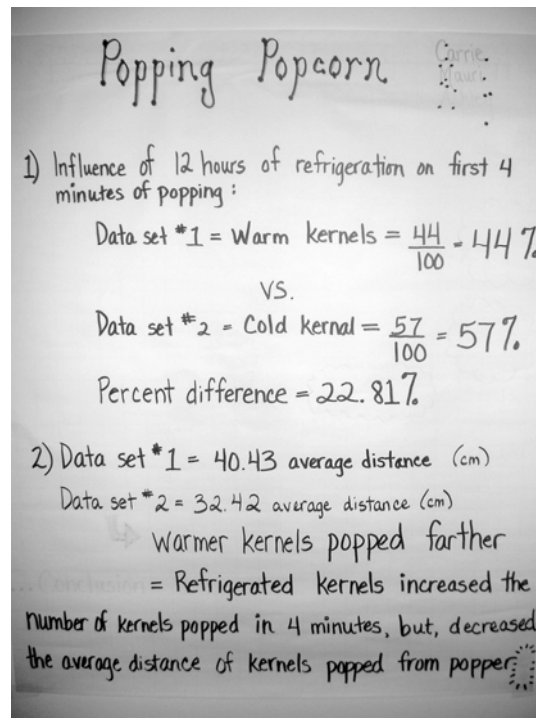 Popping Popcorn
Carrie
Mauri
1) Influence of 12 hours of refrigeration on first 4
minutes of popping :
Data set #1 = Warm kernels = 44/100 - 44%
VS.
Data set #2 = Cold kernal = 57/100 = 57%
Percent difference = 22.81%
2) Data set #1 = 40.43 average distance (cm)
Data set #2 = 32.42 average distance (cm)
warmer kernels popped farther
... Conclusion = Refrigerated kernels increased the
number of kernels popped in 4 minutes, but, decreased
the average distance of kernels popped from popper